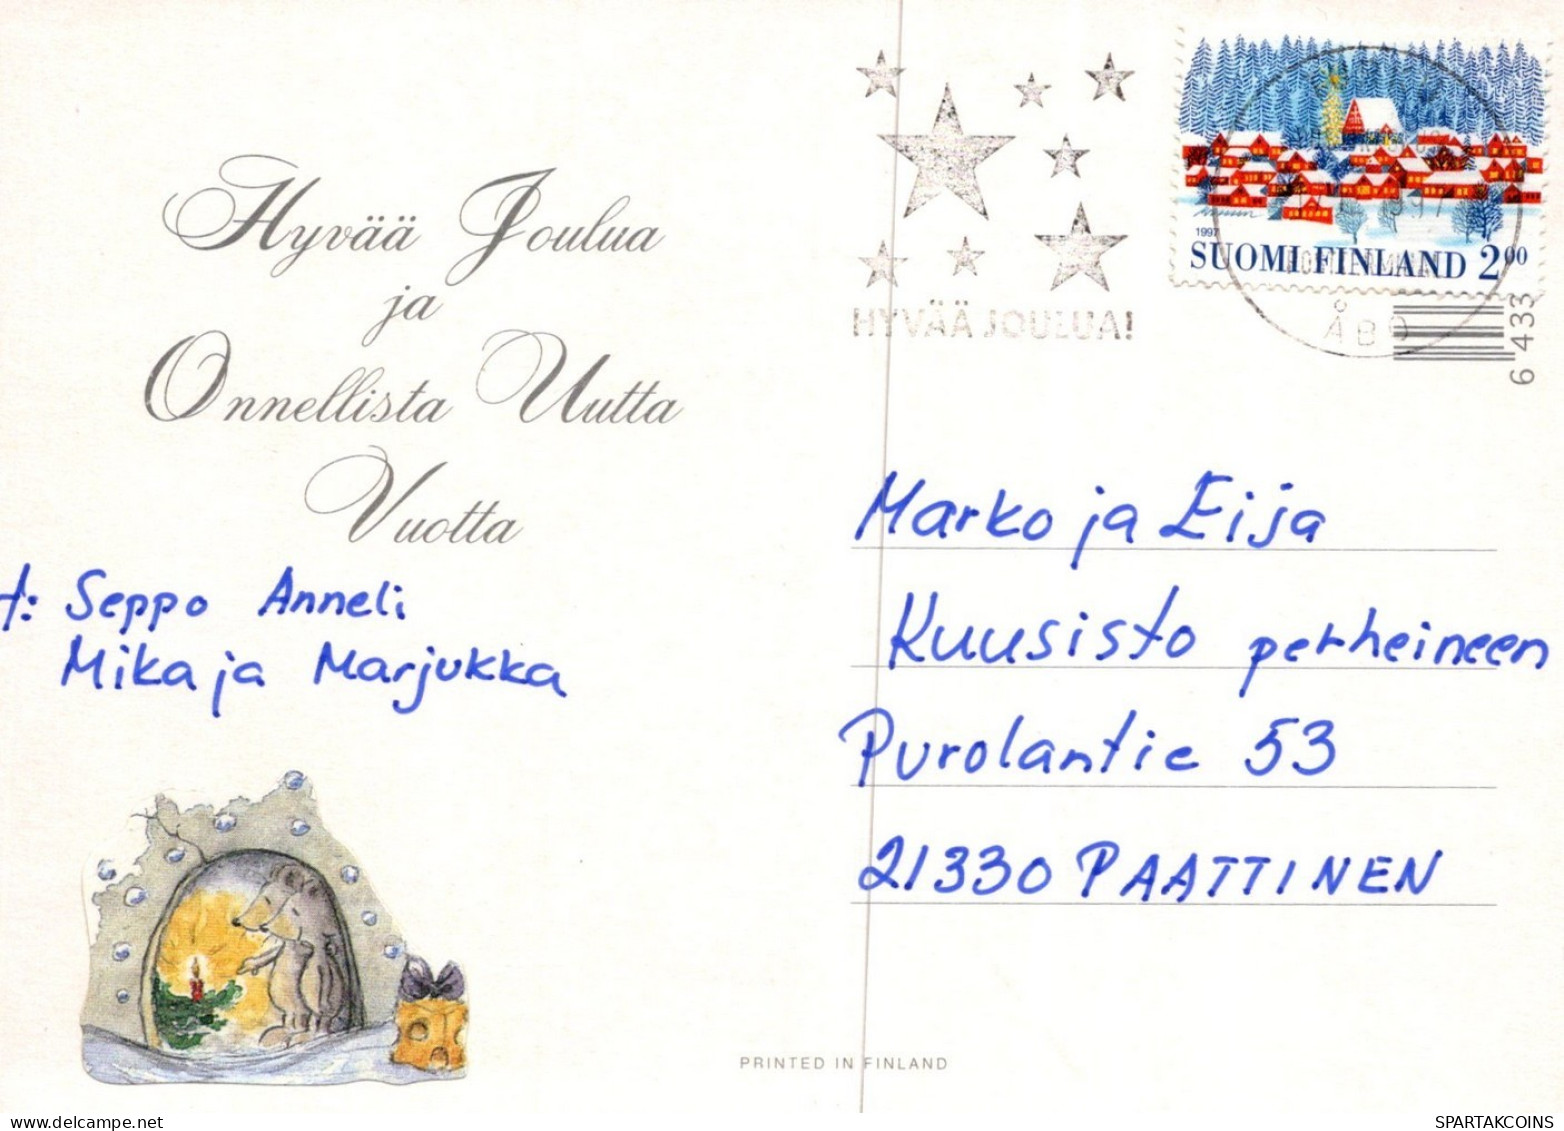 Hyvää Joulua
ja
Onnellista Uutta
Vuotta
t: Seppo Anneli
Mika ja Marjukka
HYVÄÄ JOULUA!
1997
SUOMI FINLAND 2.00
ÅBO
6 433
Marko ja Eija
Kuusisto perheineen
Purolantie 53
21330 PAATTINEN
PRINTED IN FINLAND
SPARTAKCOINS